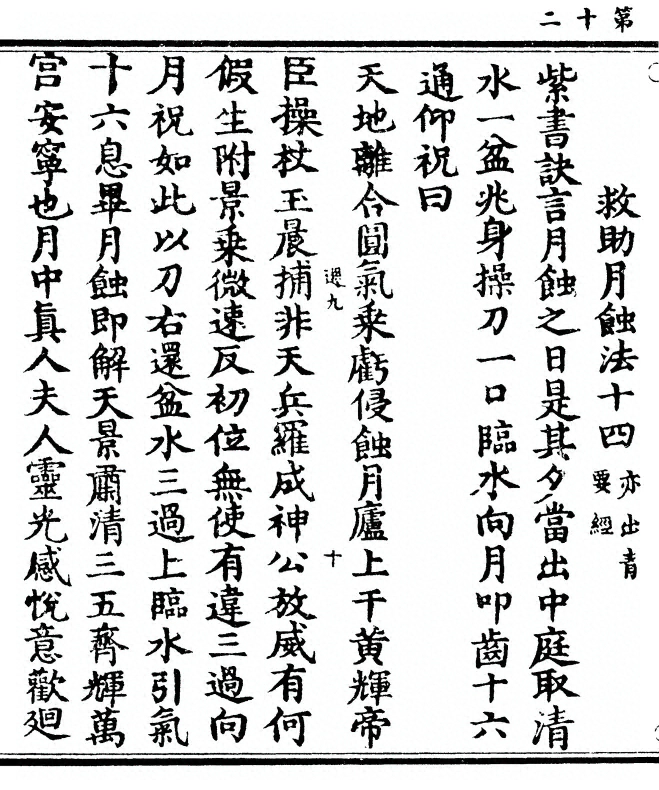 第十二
救助月蝕法十四亦出青要經
紫書訣言月蝕之日是其夕當出中庭取清
水一盆兆身操刀一口臨水向月叩齒十六
通仰祝曰
天地離合圓氣乘虧侵蝕月廬上干黃輝帝
過九
十
臣操杖玉晨捕非天兵羅成神公放威有何
假生附景乘微速反初位無使有違三過向
月祝如此以刀右還盆水三過上臨水引氣
十六息畢月蝕即解天景肅清三五齊輝萬
宮安寧也月中真人夫人靈光感悅意歡迴